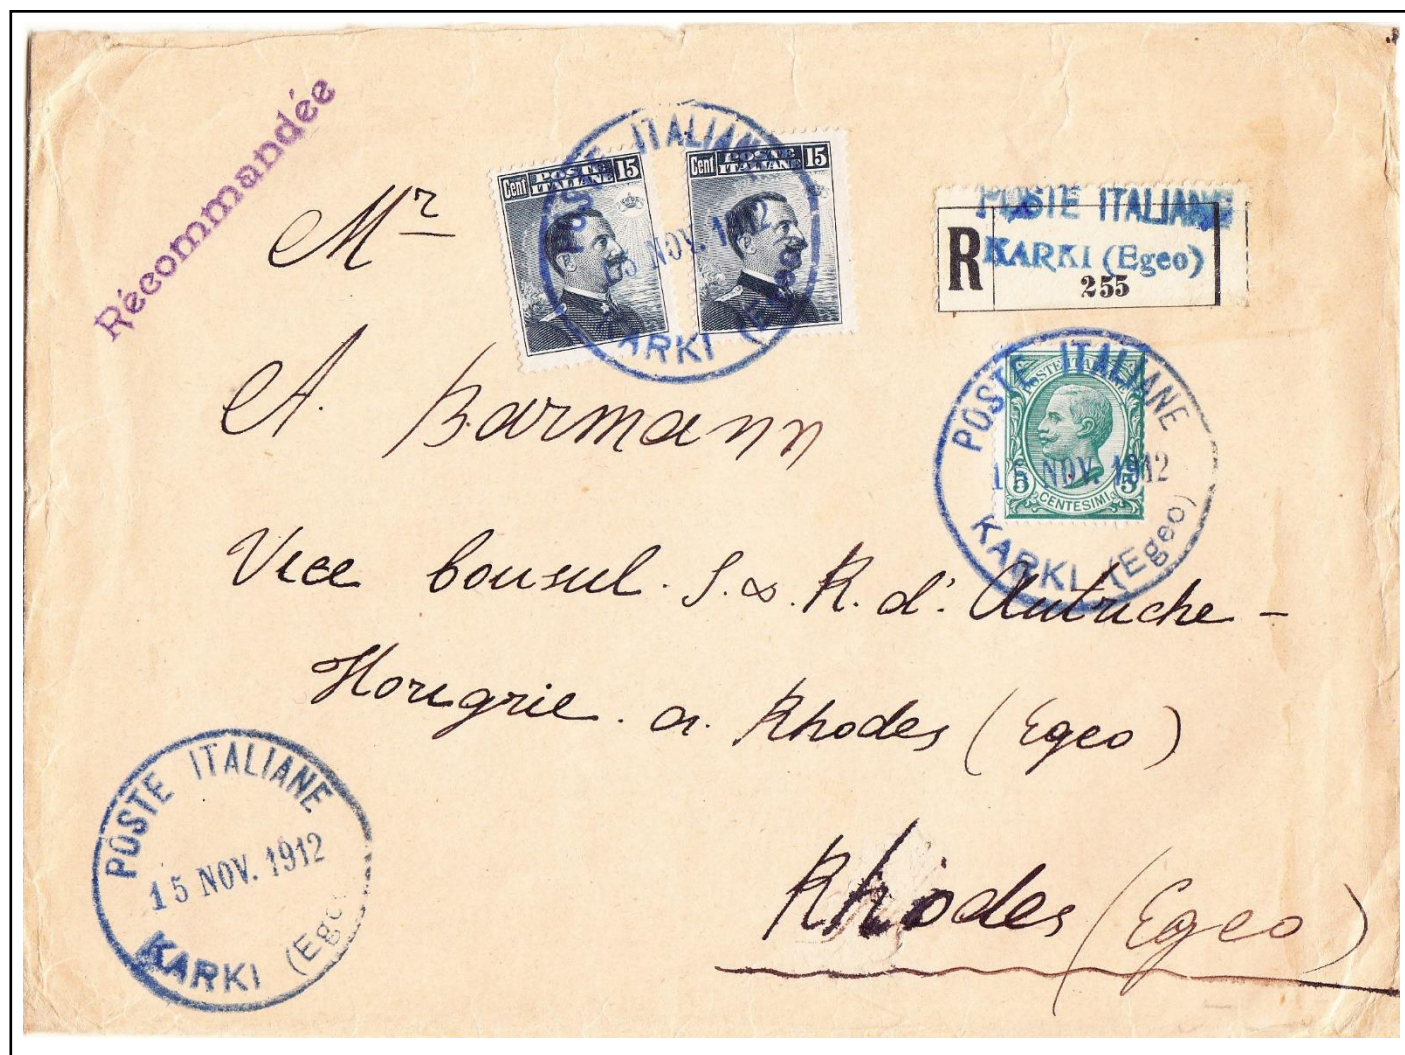 Récommandée
Cent POSTE ITALIANE 15
Cent POSTE ITALIANE 15
POSTE ITALIANE
15 NOV. 1912
KARKI (Egeo)
POSTE ITALIANE
R KARKI (Egeo)
255
POSTE ITALIANE
15 NOV. 1912
KARKI (Egeo)
POSTE ITALIANE
5 5
CENTESIMI
Mr
A. Barmann
Vice Consul. I. & R. d'Autriche-
Hongrie. a. Rhodes (Egeo)
Rhodes (Egeo)
POSTE ITALIANE
15 NOV. 1912
KARKI (Egeo)